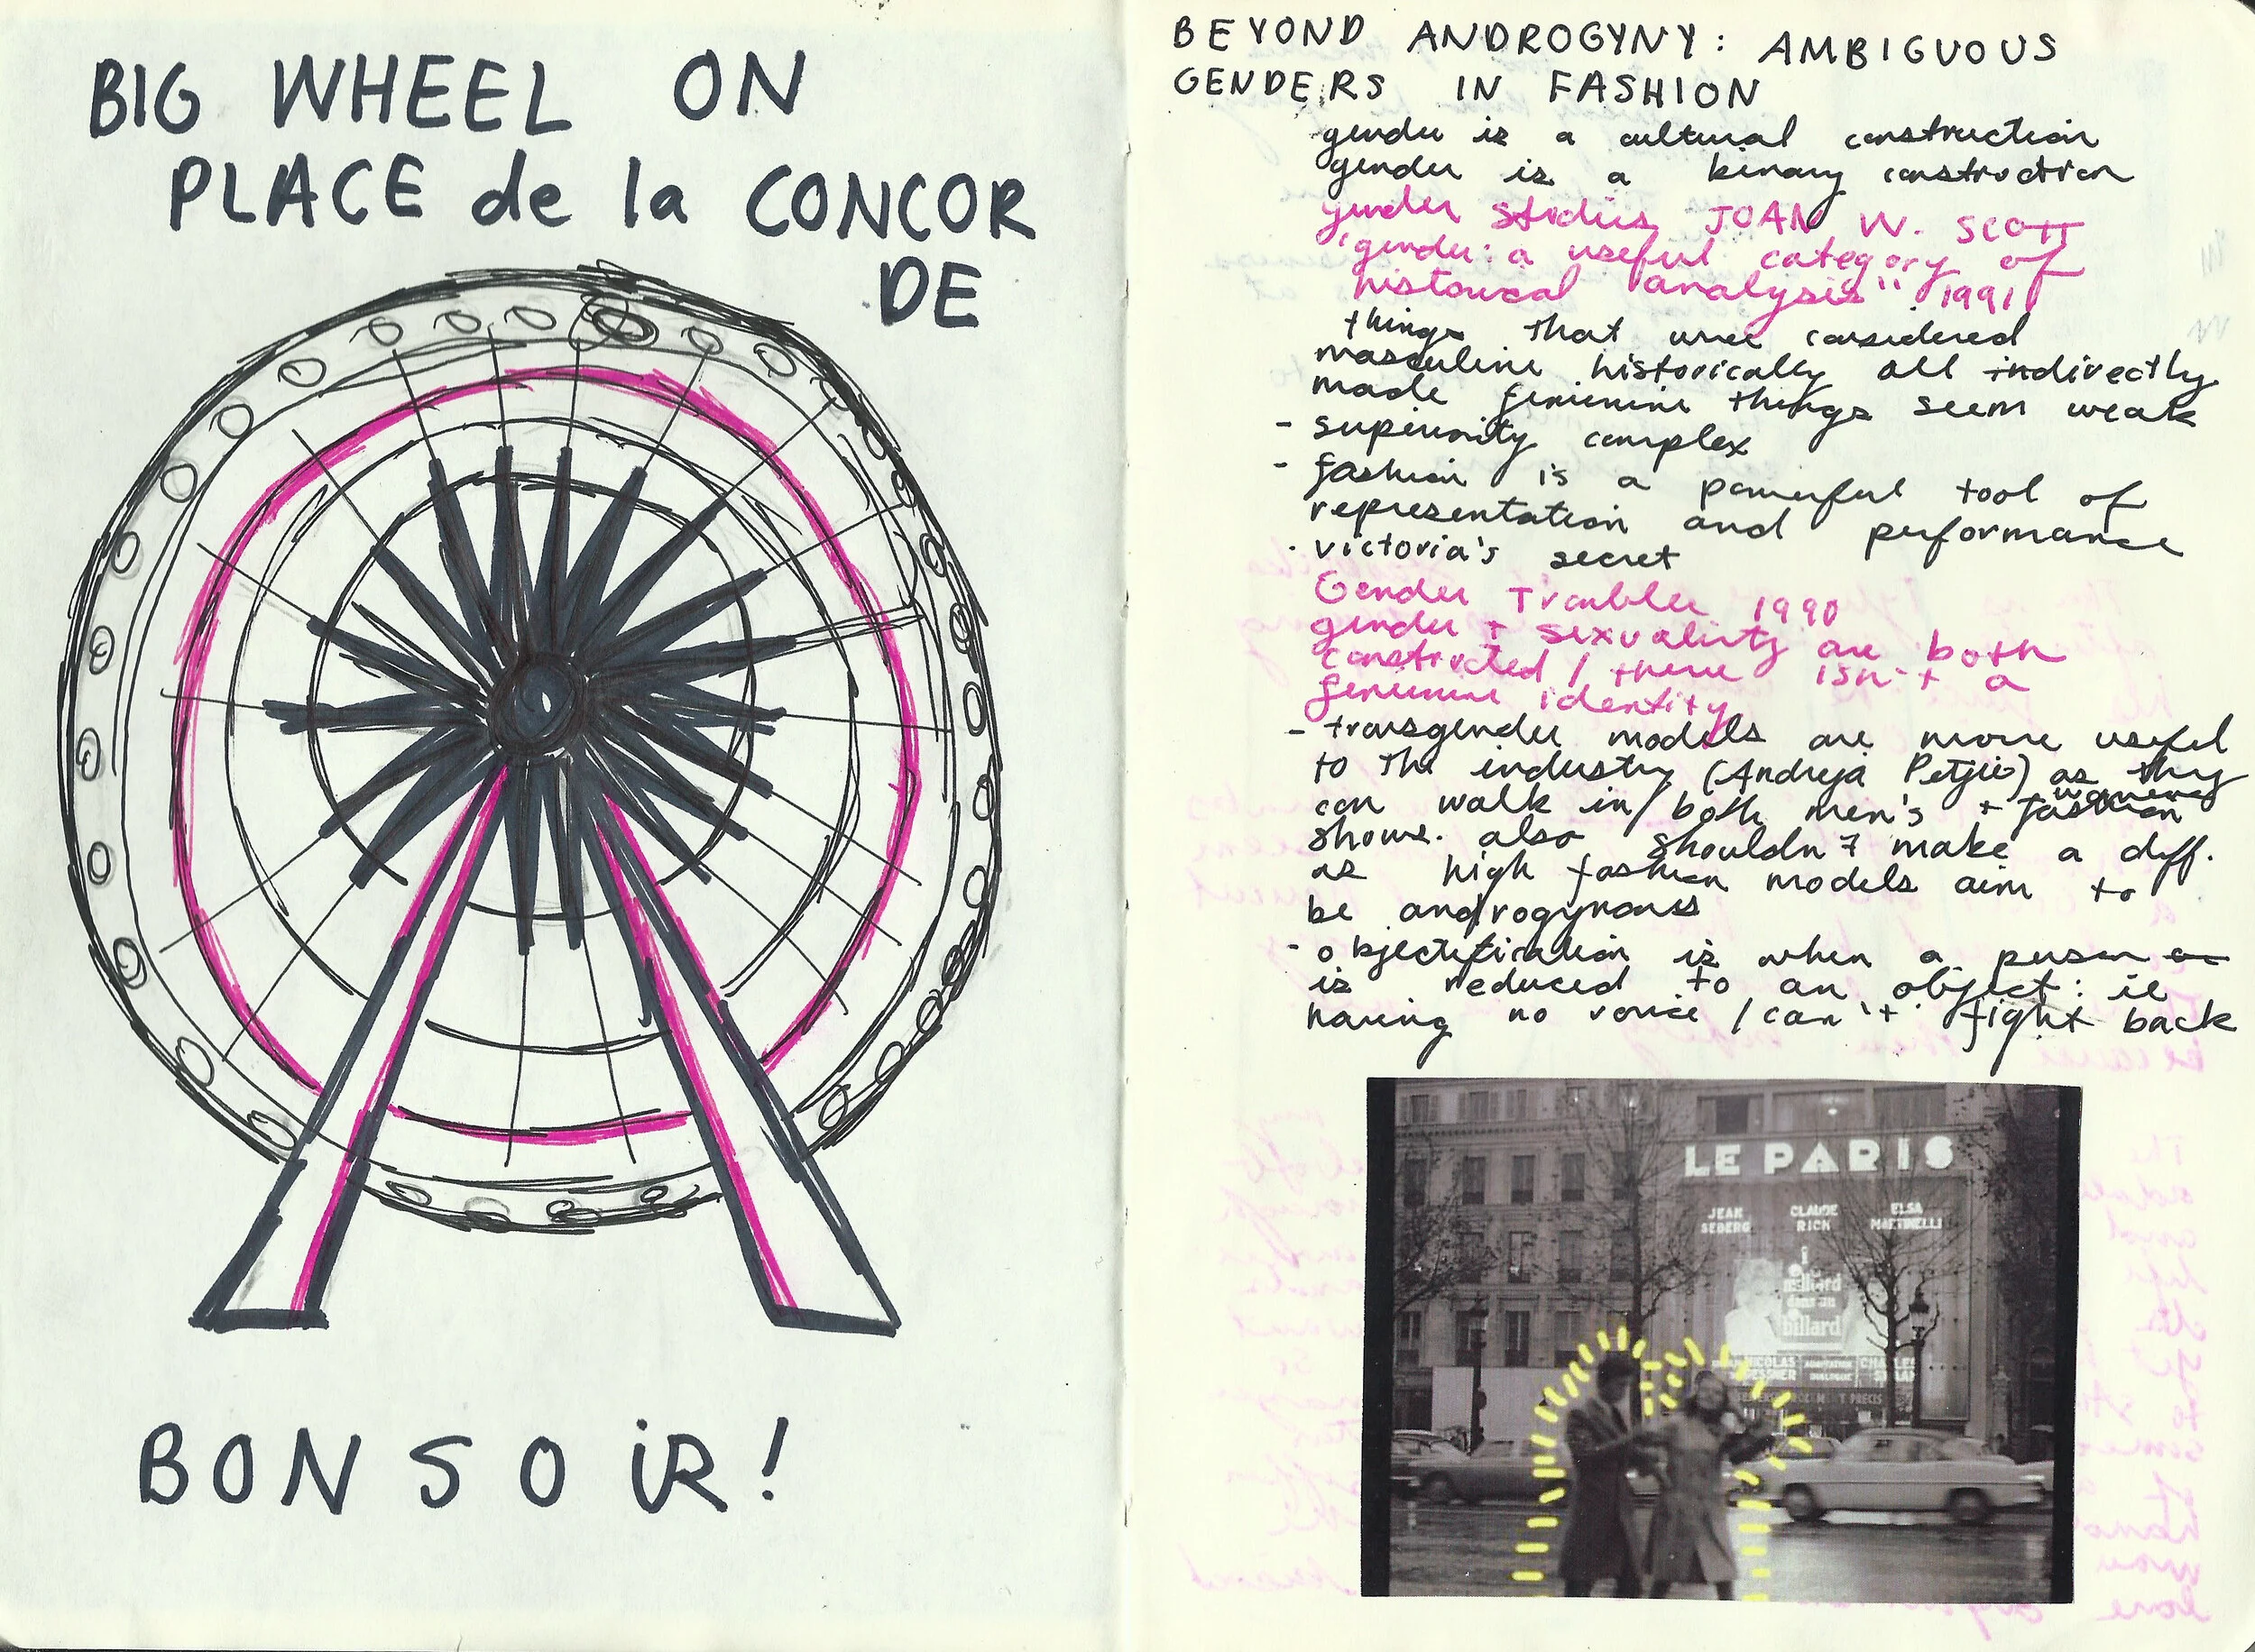 BIG WHEEL ON
PLACE de la CONCOR
DE
BONSOiR!
BEYOND ANDROGYNY: AMBIGUOUS
GENDERS IN FASHION
gender is a cultural construction
gender is a binary construction
gender studies JOAN W. SCOTT
"gender: a useful category of
historical analysis" 1991
things that were considered
masculine historically all indirectly
made feminine things seem weak
- superiority complex
- fashion is a powerful tool of
representation and performance
· victoria's secret
Gender Trouble 1990
gender + sexuality are both
constructed / there isn't a
feminine identity
- transgender models are more useful
to the industry (Andreja Petjic) as they
can walk in both men's + women's fashion
shows. also shouldn't make a diff.
as high fashion models aim to
be androgynous
- objectification is when a person
is reduced to an object: ie
having no voice / can't fight back
LE PARIS
JEAN SEBERG
CLAUDE RICH
ELSA MARTINELLI
milliard
dans un
billard
NICOLAS